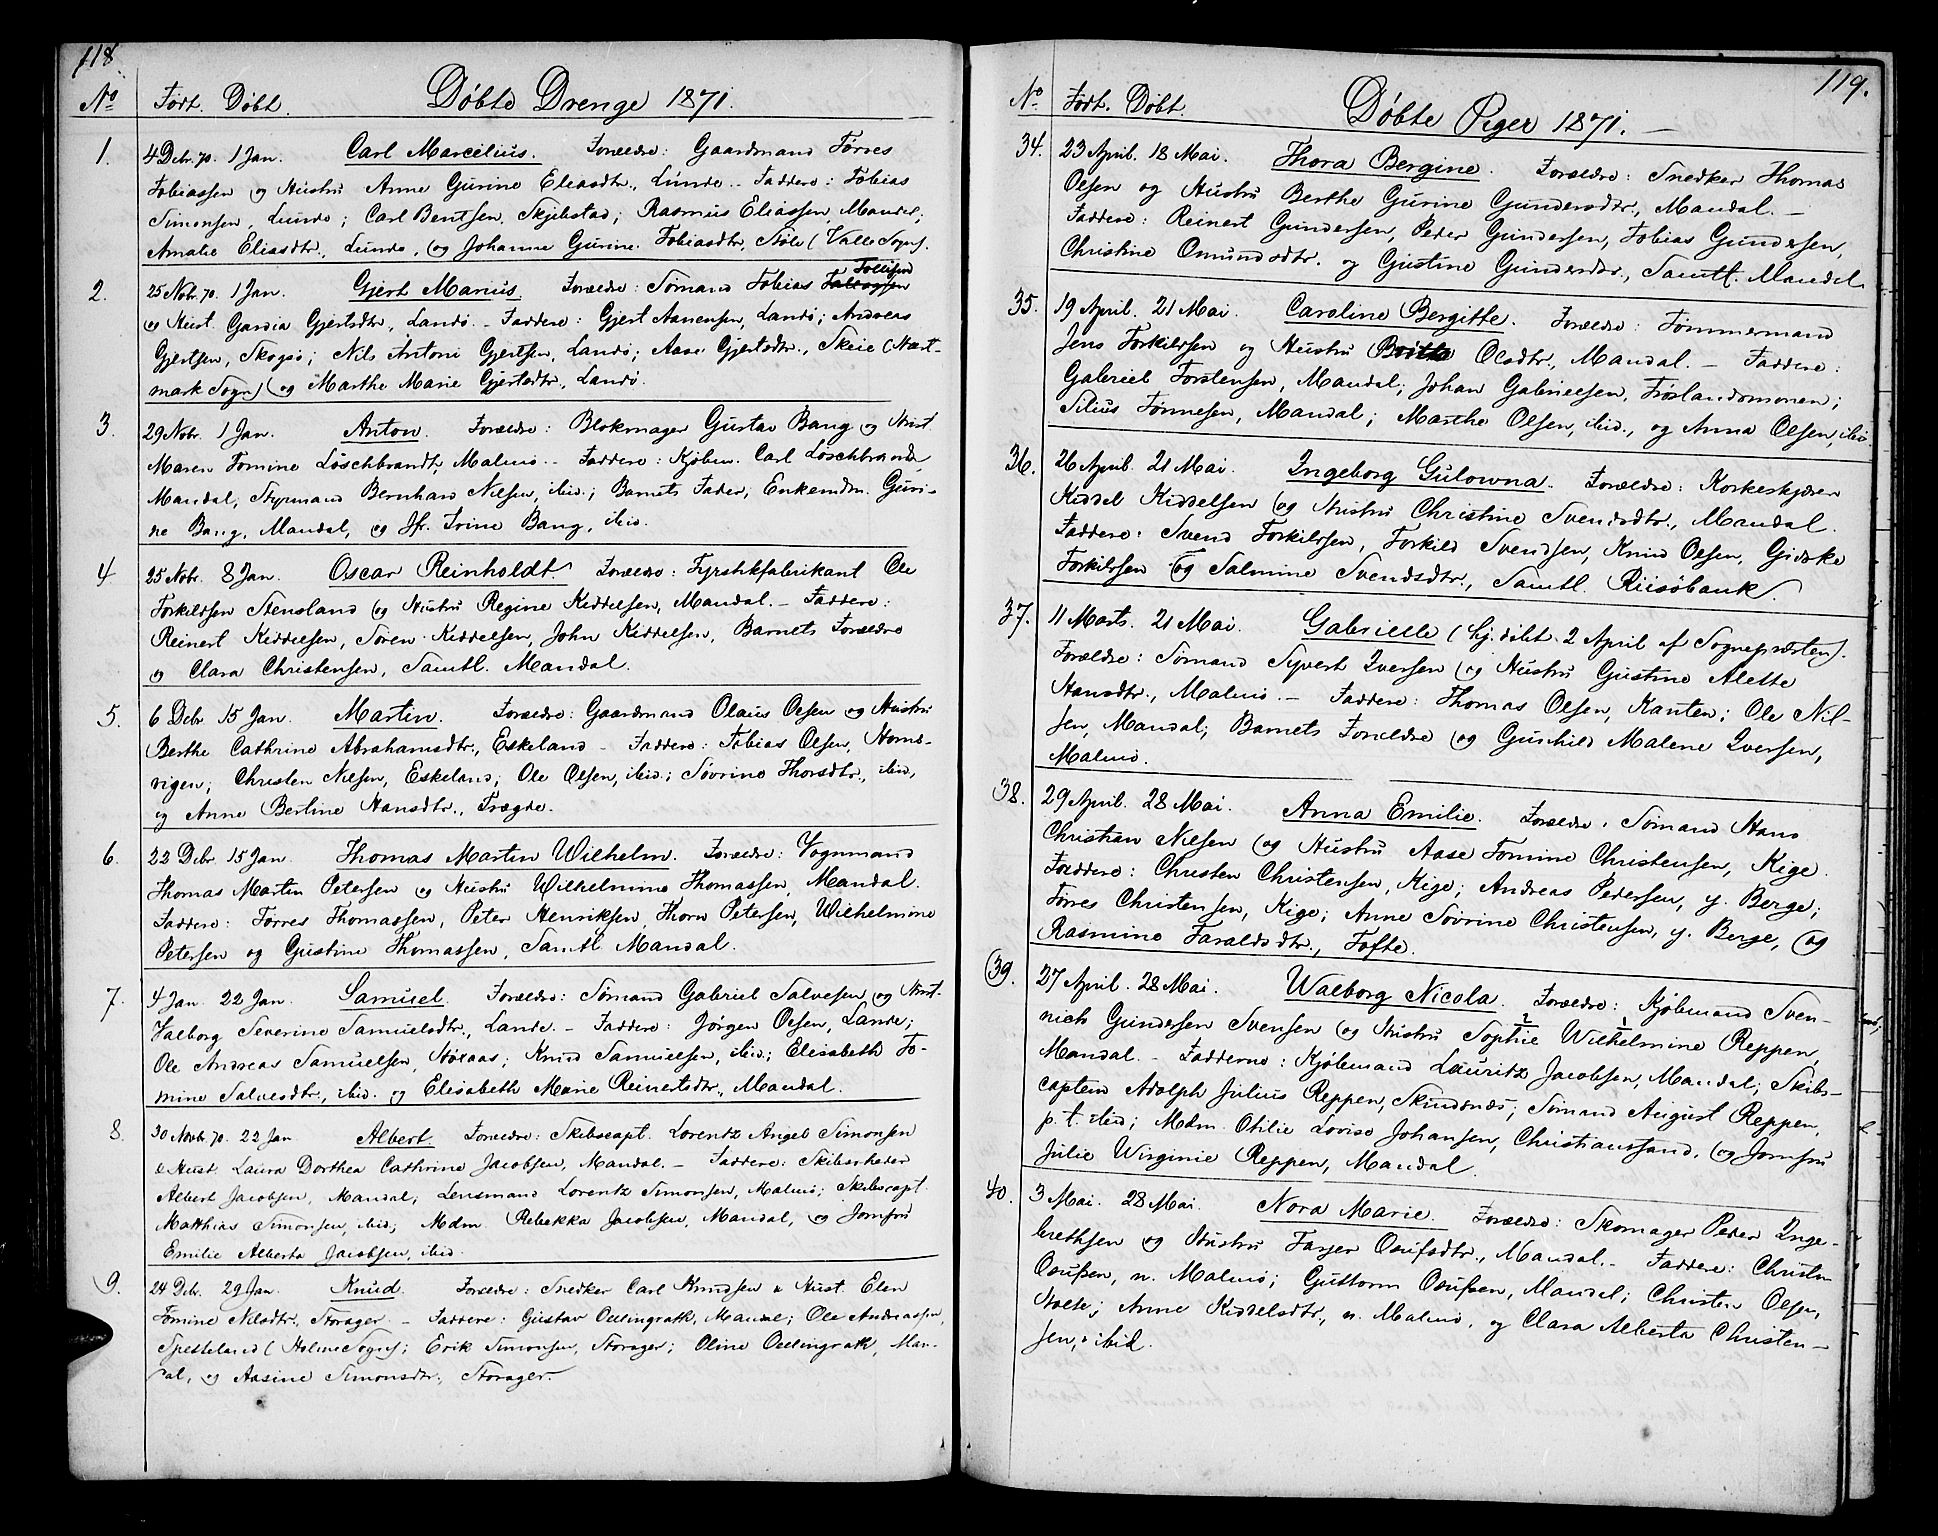 118.
No Født. Døbt. Døbte Drenge 1871.
1. 4 Debr. 70. 1 Jan. Carl Marcelius. Forældre: Gaardmand Tørres
Tobiassen og Hustru Anne Gurine Eliasdtr., Lunde. - Faddere: Tobias
Simonsen, Lunde; Carl Bentsen, Skjebstad; Rasmus Eliassen, Mandal;
Amalie Eliasdtr., Lunde, og Johanne Gurine Tobiasdtr, Støle (Valle Sogn).
2. 25 Nobr. 70. 1 Jan. Gjert Marius. Forældre: Sømand Tobias
og Hust. Gardia Gjertsdtr., Landø. - Faddere: Gjert Aanensen, Landø; Andreas
Gjertsen, Skogsø; Nils Antoni Gjertsen, Landø; Aase Gjertsdtr., Skeie (
mark Sogn) og Marthe Marie Gjertsdtr., Landø.
3. 29 Nobr. 1 Jan. Anton. Forældre: Blokmager Gustav Bang og Hust.
Maren Tomine Løschbrandt, Malmø. - Faddere: Kjøbm. Carl Løschbrandt,
Mandal; Styrmand Bernhard Nilsen, ibid.; Barnets Fader, Enkemdm. Guri-
ne Bang, Mandal, og Jfr. Trine Bang, ibid.
4 25 Nobr. 8 Jan. Oscar Reinholdt. Forældre: Fyrstikfabrikant Ole
Torkildsen Stensland og Hustru Regine Kiddelsen, Mandal. - Faddere:
Reinert Kiddelsen, Søren Kiddelsen, John Kiddelsen, Barnets Forældre
og Clara Christensen, Samtl. Mandal.
5. 6 Debr. 15 Jan. Martin. Forældre: Gaardmand Olaus Olsen og Hustru
Berthe Cathrine Abrahamsdtr., Eskeland. - Faddere: Tobias Olsen,
vigen; Christen Nilsen, Eskeland; Ole Olsen, ibid.; Sovrine Thorsdtr., ibid,
og Anne Bertine Hansdtr., Tregde.
6. 22 Debr. 15 Jan. Thomas Martin Wilhelm. Forældre: Vognmand
Thomas Martin Petersen og Hustru Wilhelmine Thomassen, Mandal.
Faddere: Tørres Thomassen, Peter Henriksen, Thora Petersen, Wilhelmine
Petersen og Gustine Thomassen, Samtl. Mandal.
7. 4 Jan. 22 Jan. Samuel. Forældre: Sømand Gabriel Salvesen og Hust.
Valborg Severine Samuelsdtr., Lande. - Faddere: Jørgen Olsen, Lande;
Ole Andreas Samuelsen, ; Knud Samuelsen, ibid.; Elisabeth To-
mine Salvesdtr., ibid. og Elisabeth Marie Reinertsdtr., Mandal.
8. 30 Novbr. 70. 22 Jan. Albert. Forældre: Skibscapt. Lorentz Angel Simonsen
& Hust. Laura Dorthea Cathrine Jacobsen, Mandal. - Faddere: Skibsrheder
Albert Jacobsen, Mandal; Lensmand Lorentz Simonsen, Malmø; Skibscapt.
Matthias Simonsen, ibid; Mdm. Rebekka Jacobsen, Mandal, og Jomfru
Emilie Alberta Jacobsen, ibid.
9. 24 Debr. 29 Jan. Knud. Forældre: Snedker Carl Knudsen & Hust. Elen
Tomine Nilsdtr., Storager. - Faddere: Gustav Oellingrath, Mandal; Ole Andreassen,
Spetteland (Holme Sogn); Erik Simonsen, Storager; Oline Oellingrath, Man-
dal, og Aasine Simonsdtr., Storager.
119.
No Født. Døbt. Døbte Piger 1871. -
34. 23 April. 18 Mai. Thora Bergine. Forældre: Snedker Thomas
Olsen og Hustru Berthe Gurine Gundersdtr., Mandal. -
Faddere: Reinert Gundersen, Peder Gundersen, Tobias Gundersen,
Christine Omundsdtr. og Gustine Gundersdtr., Samtl. Mandal.
35. 19 April. 21 Mai. Caroline Bergitte. Forældre: Tømmermand
Jens Torkildsen og Hustru Britte Olsdtr., Mandal. - Faddere:
Gabriel Torstensen, Mandal; Johan Gabrielsen, Frøslandsmonen;
Silius Tønnesen, Mandal; Marthe Olsen, ibid., og Anna Olsen, ibid.
36. 26 April. 21 Mai. Ingeborg Gulowna. Forældre: Korkeskjærer
Kiddel Kiddelsen og Hustru Christine Svendsdtr., Mandal.
Faddere: Svend Torkildsen, Torkild Svendsen, Knud Olsen, Gidske
Torkildsen og Salmine Svendsdtr., Samtl. Riisøbank.
37. 11 Marts. 21 Mai. Gabrielle (hj.døbt. 2 April af Sognepræsten).
Forældre: Sømand Syvert Iversen og Hustru Gustine Alette
Hansdtr., Malmø. - Faddere: Thomas Olsen, Kanten; Ole Nil-
sen, Mandal; Barnets Forældre og Gunhild Malene Iversen,
Malmø.
38. 29 April. 28 Mai. Anna Emilie. Forældre: Sømand Hans
Christian Nilsen og Hustru Aase Tomine Christensen, Kige.
Faddere: Christen Christensen, Kige; Andreas Pedersen, y. Berge;
Tørres Christensen, Kige; Anne Sovrine Christensen, y. Berge, og
Rasmine Taraldsdtr., Tofte.
39. 27 April. 28 Mai. Walborg Nicola. Forældre: Kjøbmand Sven-
nich Gundersen Svensen og Hustru Sophie Wilhelmine Reppen,
Mandal. - Fadderne: Kjøbmand Lauritz Jacobsen, Mandal; Skibs-
captein Adolph Julius Reppen, Skudesnæs; Sømand August Reppen,
p.t. ibid; Mdm. Othilie Lovise Johansen, Christianssand, og Jomfru
Julie Wirginie Reppen, Mandal.
40. 3 Mai. 28 Mai. Nora Marie. Forældre: Skomager Peder Inge-
brethsen og Hustru Tasjer Osufsdtr., Mandal. - Faddere: Christen
Osufsen, n. Malmø; Guttorm Osufsen, Mandal; Christen Olsen,
; Anne Kiddelsdtr., n. Malmø, og Clara Alberta Christen-
sen, ibid.